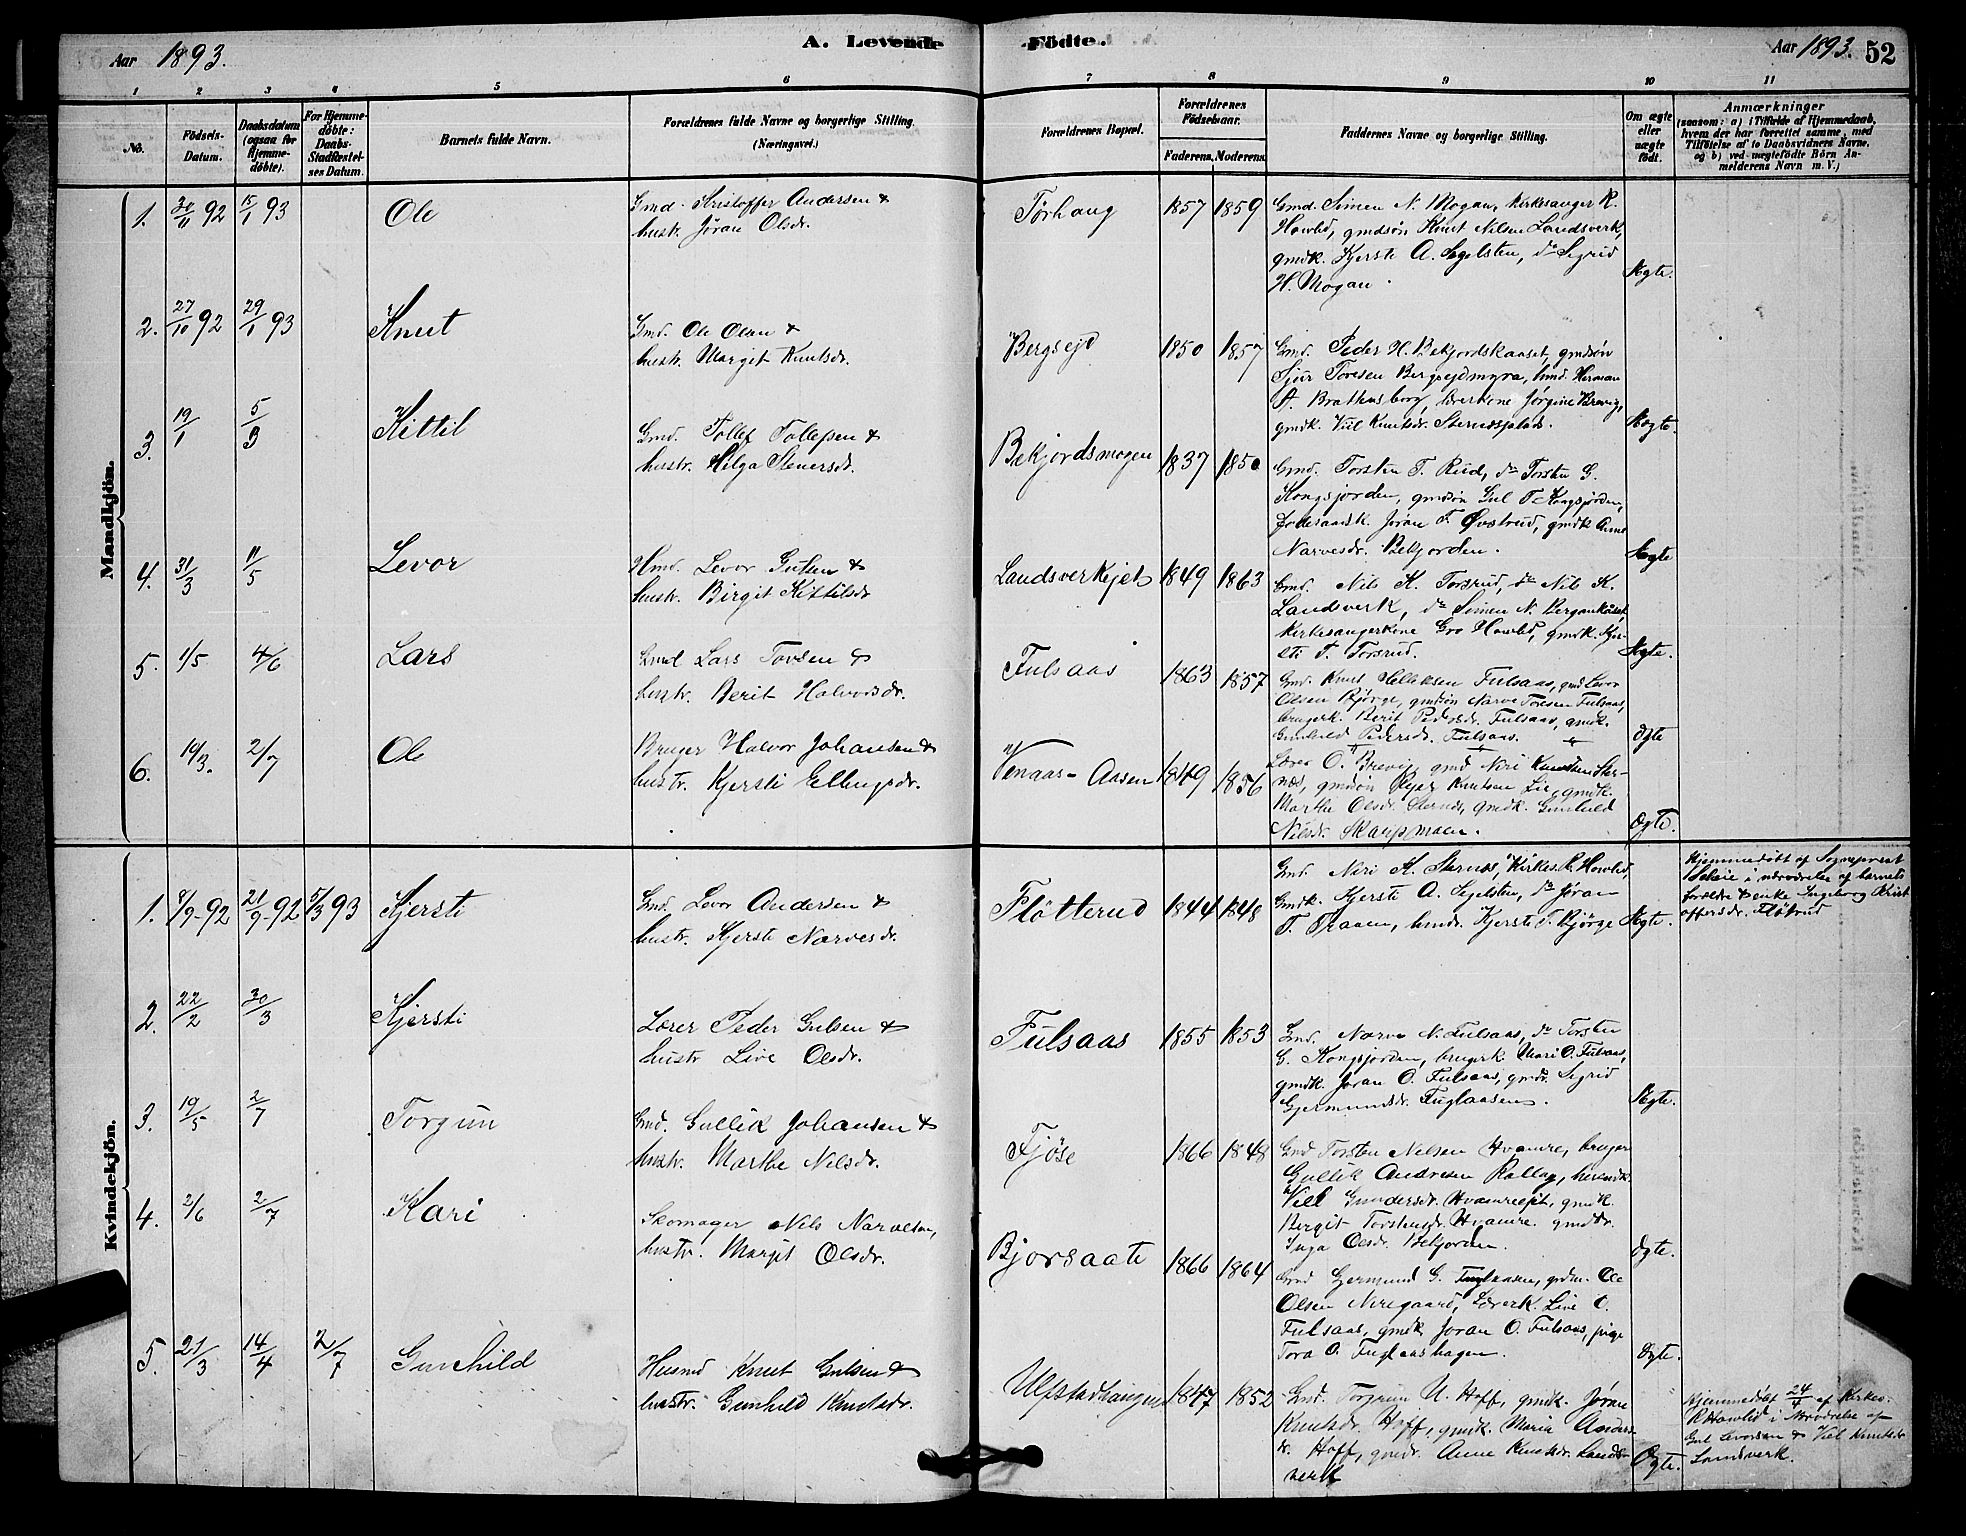 Aar 1893. A. Levende Födte. Aar 1893. 52
1 2 3 4 5 6 7 8 9 10 11
No.
Födsels-Datum.
Daabsdatum (ogsaa for Hjemme-döbte).
For Hjemme-döbte: Daabs-Stadfæstel-ses Datum.
Barnets fulde Navn.
Forældrenes fulde Navne og borgerlige Stilling. (Næringsvei.)
Forældrenes Bopæl.
Forældrenes Födselsaar.
Faderens. Moderens.
Faddernes Navne og borgerlige Stilling.
Om ægte eller uægte födt.
Anmærkninger
(saasom: a) i Tilfælde af Hjemmedaab, hvem der har forrettet samme, med Tilföielse af to Daabsvidners Navne, og b) ved uægtefödte Börn Anmelderens Navn m. V.)
Mandkjön.
1. 30/11 92 15/1 93 Ole
Gmd. Kristoffer Andersen &
hustr. Jøran Olsdr.
Törhaug 1857 1859
Gmd. Simen N. Mogan, Kirkesanger R.
Howlid, gmdsøn Knut Nilsen Landsverk,
gmdk. Kjersti A. Segelsten, do Sigrid
H. Mogan.
Ægte.
2. 27/10 92 29/1 93 Knut
Gmd. Ole Olsen &
hustr. Margit Knutsdr.
Bergsejd 1850 1857
Gmd. Peder H. Bekjordskaaset, gmdsøn
Sjur Toresen Bergsejdmyra, hmd. Herman
A. Brathusborg, lærerkone Jørgine Brevig,
gmdk. Viel Knutsdr.
Ægte.
3. 19/1 5/3 Kittil
Gmd. Tollef Tollefsen &
hustr. Helga Stenersdr.
Bekjordsmogen 1837 1850
Gmd. Torsten T. Rud, do Torsten G.
Kongsjorden, gmdsøn Gul T. Kongsjorden,
Jøran T. Øvstrud, gmdk Anne
Narvesdr. Bekjorden.
Ægte
4. 31/3 11/5 Levor
Hmd. Levor Gulsen &
hustr. Birgit Kittilsdr
Landsverkejet 1849 1863
Gmd. Nils K. Torsrud, do Nils K.
Landsverk, do Simen N.
Kirkesangerkone Gro Howlid, gmdk. Kjer-
sti T. Torsrud.
Ægte.
5. 1/5 4/6 Lars
Gmd Lars Torsen &
hustr. Berit Halvorsdr.
Fulsaas 1863 1857
Gmd. Knut Helleksen Fulsaas, gmd Levor
Olsen Bjørge, gmdsøn Narve Toresen Fulsaas,
brugerk. Berit Pedersdr. Fulsaas, gmdk.
Gunhild Pedersdr. Fulsaas.
Ægte
6. 19/3. 2/7 Ole
Bruger Halvor Johansen &
hustr. Kjersti Ellingsdr.
Venaas-Aasen 1849 1856
Lærer O. Brevig, gmd Niri Knutsen Ster-
næs, gmdsøn Knutsen Lie, gmdk.
Marthe Olsdr. Sternæs, gmdk. Gunhild
Nilsdr. Skarpmoen.
Ægte.
Kvindekjön.
1. 8/9-92 21/9-92 5/3 93 Kjersti
Gmd. Levor Andersen &
hustr. Kjersti Narvesdr.
Fløtterud 1844 1848
Gmd Niri K. Sternæs, Kirkes. R. Howlid,
Gmdk. Kjersti A. Segelsten, do Jøran
T. Traaen, hmdr. Kjersti T. Bjørge
Ægte.
Hjemmedøbt af Sogneprest
i nærværelse af barnets
forældre & enke Ingeborg Krist
offersdr. Fløtrud
2. 22/2 30/3 Kjersti
Lærer Peder Gulsen &
hustr Live Olsdr.
Fulsaas 1855 1853
Gmd. Narve N. Fulsaas, do Torsten
G. Kongsjorden, brugerk Mari O. Fulsaas,
gmdk. Jøran O. Fulsaas, gmdr. Sigrid
Gjermundsdr. Fuglaasen.
Ægte.
3. 19/5 2/7 Torgun
Gmd. Gullik Johansen &
hustr. Marthe Nilsdr.
Fjöse 1866 1848
Gmd Torsten Nilsen Hvamre, bruger
Gullik Andersen Rollag,
Viel Gundersdr. Hvamreejet, gmdk.
Bergit Torstensdr. Hvamre. gmddr.
Inga Olsdr. Bekjorden.
Ægte.
4. 2/6 2/7 Kari
Skomager Nils Narvesen,
hustr. Margit Olsdr.
Bjorsaate 1866 1864
Gmd Gjermund G. Fuglaasen, gmdsn. Ole
Olsen Niregaard, Lærerk. Live O.
Fulsaas, gmdk Jøran O. Fulsaas, pige
Tora O. Fuglaashagen.
Ægte.
5. 21/3 14/4 2/7 Gunhild
Husmd Knut Gulsen &
hustr. Gunhild Knutsdr.
Ulfstadhaugen 1847 1852
Gmd. Torgrim U. Hoff, gmdk. Jøran
Knutsdr. Hoff, gmdk. Maria Anders
dr. Hoff, gmdr. Anne Knutsdr. Lands-
verk
Ægte.
Hjemmedøbt 24/4 af Kirkes.
R Howlid i nærværelse af
Gul Levorsen & Viel Knutsdr
Landsverk.